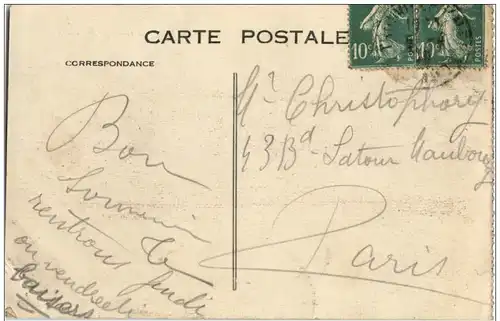 CARTE POSTALE
CORRESPONDANCE
10c 10c
POSTES POSTES
Bon
Souvenir
rentrons Jeudi
ou vendredi
baisers
Mr Christophory
43 Bd Latour Maubourg
Paris